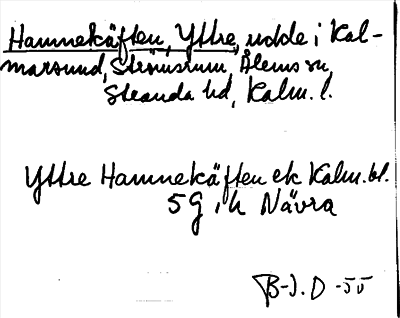 Hamnekäften, Yttre, udde i Kal-
marsund, Strömsrum, Ålems sn,
Stranda hd, Kalm. l.
Yttre Hamnekäften ek Kalm. bl.
5 G i h Nävra
B-J. D -55